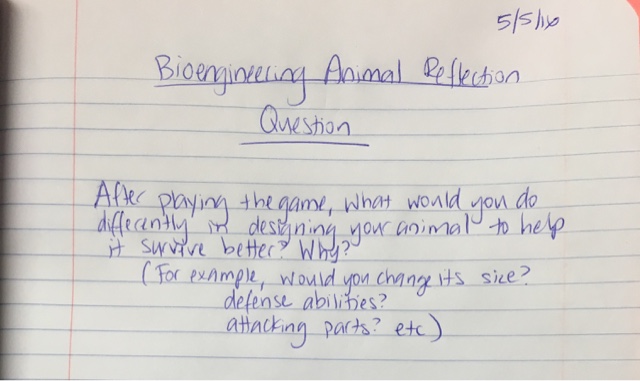 5/5/16
Bioengineering Animal Reflection
Question
After playing the game, what would you do
differently in designing your animal to help
it survive better? Why?
(For example, would you change its size?
defense abilities?
attacking parts? etc)